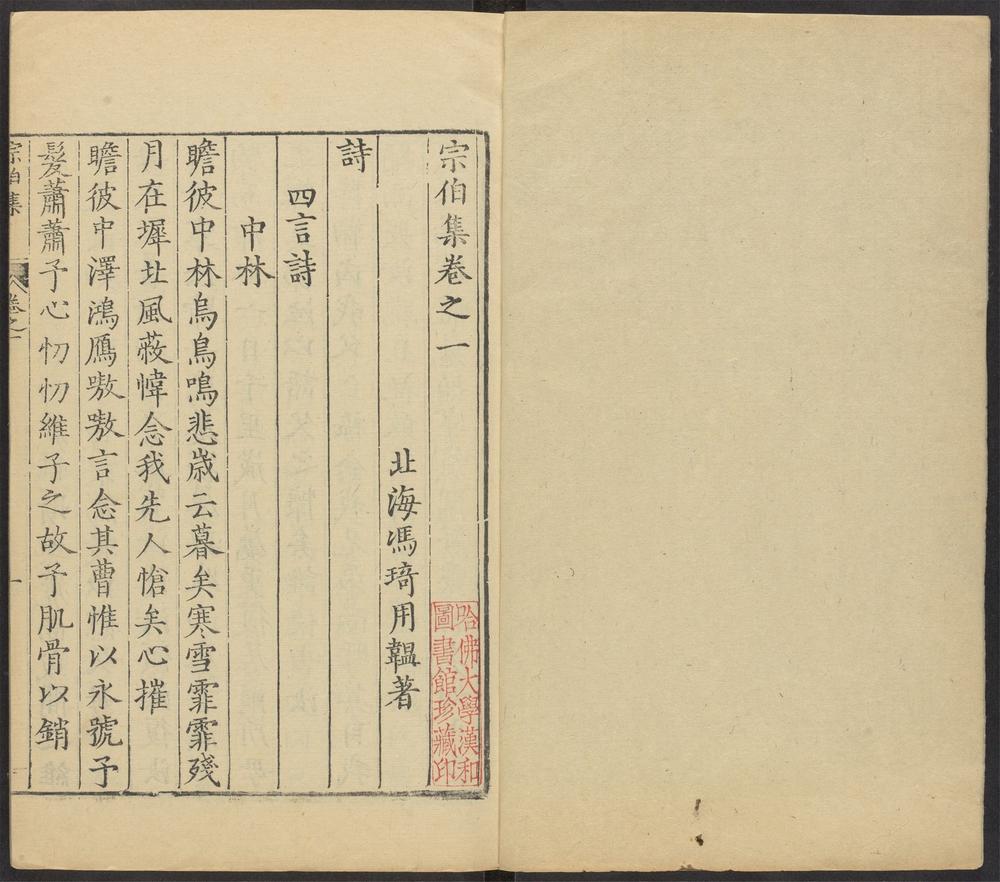 宗伯集卷之一
哈佛大學漢和
圖書館珍藏印
北海馮琦用韞著
詩
四言詩
中林
瞻彼中林烏鳥鳴悲歳云暮矣寒雪霏霏殘
月在墀北風蔽幃念我先人愴矣心摧
瞻彼中澤鴻鴈嗷嗷言念其曹惟以永號予
髮蕭蕭予心忉忉維子之故予肌骨以銷
宗伯集 卷之一 一